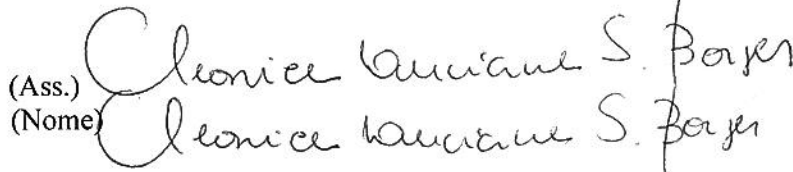 (Ass.) Cleonice Lauciane S. Borges
(Nome) Cleonice Lauciane S. Borges